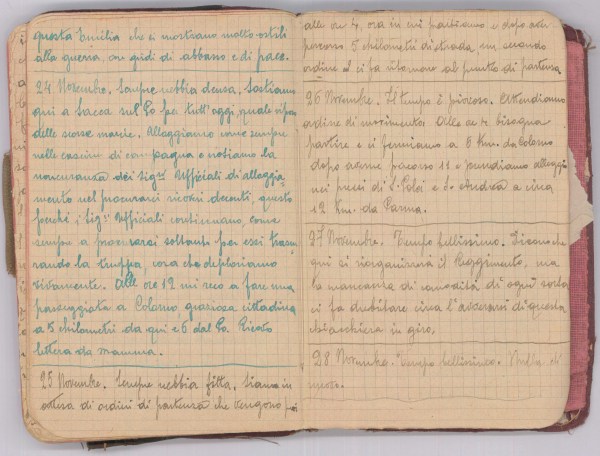 questa Emilia che si mostrano molto ostili
alla guerra, con gridi di abbasso e di pace.
24 Novembre. Sempre nebbia densa. Sostiamo
qui a Sacca sul Po per tutt'oggi, quale riposo
delle scorse marcie. Alloggiamo come sempre
nelle cascine di campagna e notiamo la
noncuranza dei Sigri Ufficiali di alloggia-
mento nel procurarci ricoveri decenti, questo
perchè i Sigri Ufficiali continuano, come
sempre a procurarsi soltanto per essi trascu-
rando la truppa, cosa che deploriamo
vivamente. Alle ore 12 mi reco a fare una
passeggiata a Colorno, graziosa cittadina
a 5 chilometri da qui e 6 dal Po. Ricevo
lettera da mamma.
25 Novembre. Sempre nebbia fitta. Siamo in
attesa di ordini di partenza che vengono poi
alle ore 4, ora in cui partiamo e dopo aver
percorso 5 chilometri di strada, un secondo
ordine ci fa ritornare al punto di partenza
26 Novembre. Il tempo è piovoso. Attendiamo
ordine di movimento. Alle ore 4 bisogna
partire e ci fermiamo a 8 Km. da Colorno
dopo averne percorso 11 e prendiamo alloggi
nei paesi di S. Polo e S. Andrea a circa
12 Km. da Parma.
27 Novembre. Tempo bellissimo. Dicono che
qui si riorganizzerà il Reggimento, ma
la mancanza di comodità di ogni sorta
ci fa dubitare circa l'avverarsi di questa
chiacchiera in giro.
28 Novembre. Tempo bellissimo. Nulla di
nuovo.